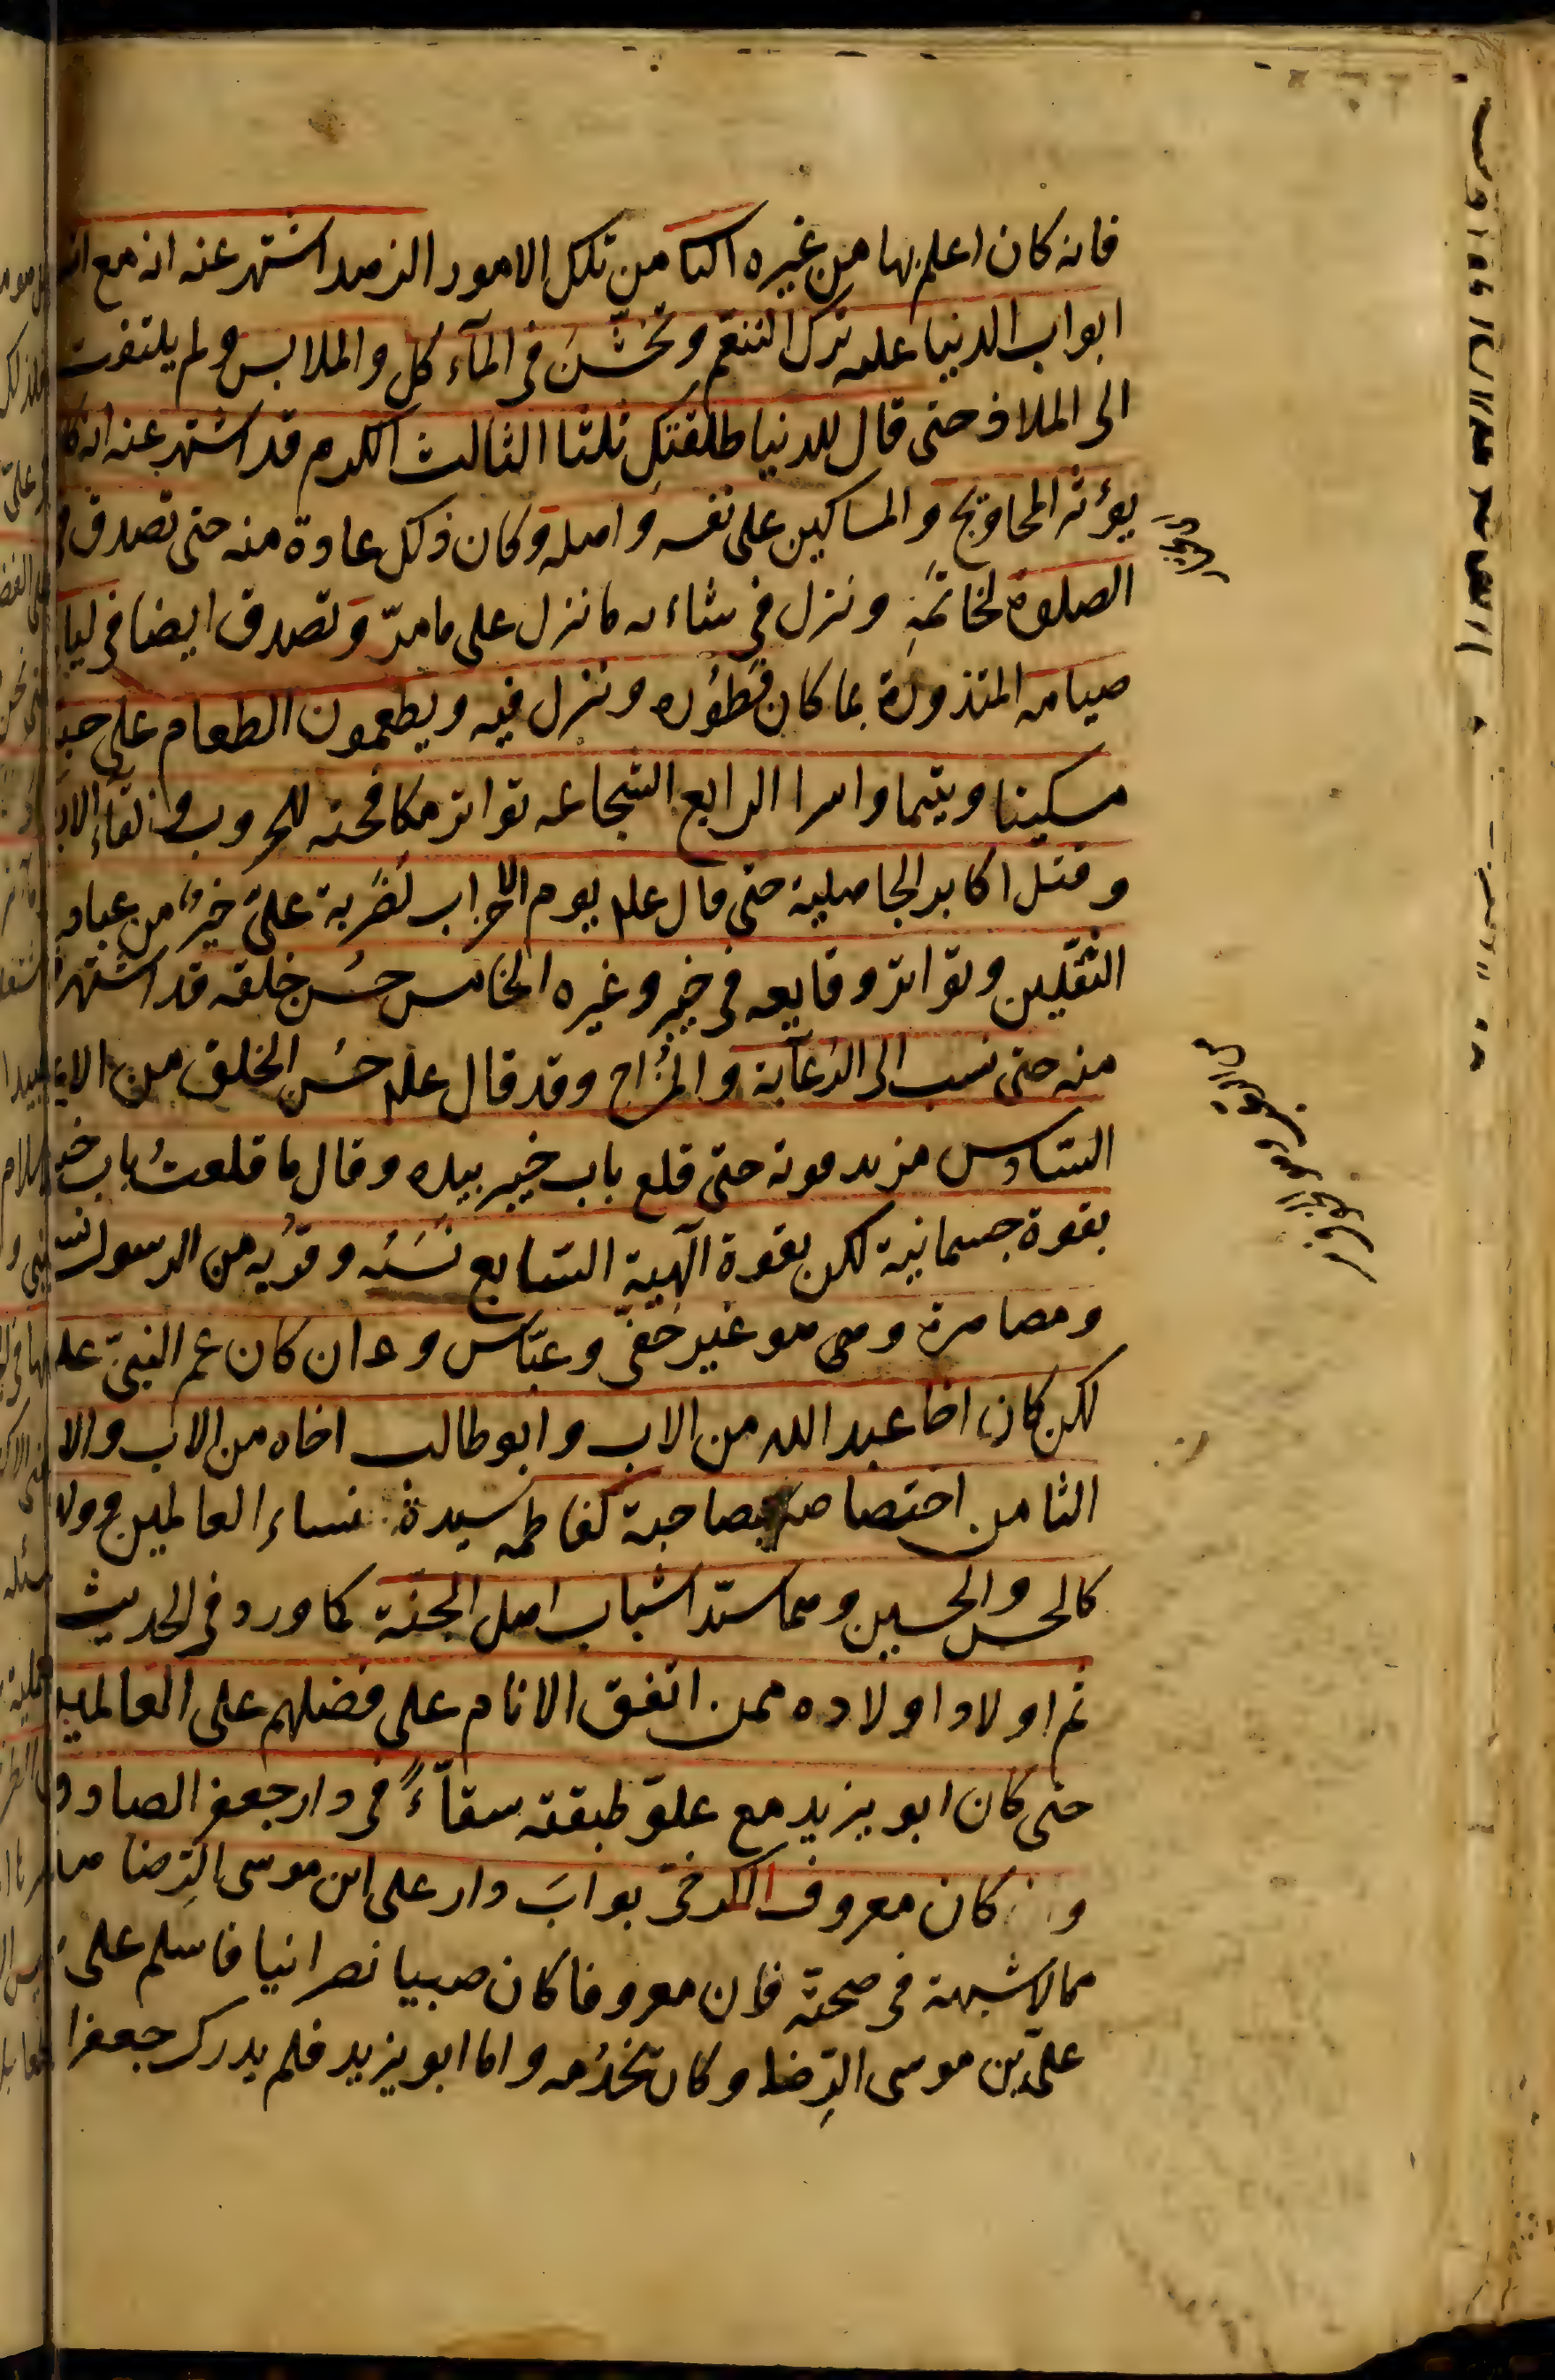 فانه كان اعلم بها من غيره الثا من تلك الامور الزهد اشتهر عنه انه مع
ابواب الدنيا عليه ترك التنعم وتخشن فى المآء كل والملابس و لم يلتفت
الى الملاذ حتى قال للدنيا طلقتكِ ثلثا الثالث الكرم قد اشتهر عنه انه كا
يؤثر المحاويج والمساكين على نفسه واهله وكان ذلك عادة منه حتى تصدق فى
الصلوة لخاتمَهِ ونزل فى شاء نه ما نزل على ما مرّ وتصدق ايضا فى ليا
صيامه المنذورة بما كان فَطؤُره ونزل فيه ويطعمون الطعام على حبه
مسكينا ويتيما واسرا الرابع الشجاعه تواتر مكافحته للحروب و لقآءِ الا
وقتل اكابر الجاهلية حتى قال علم يوم الاحزاب لضَربة علىّ خيرٌ من عباد
الثقلين وتواتر وقايعه فى خيبر وغيره الخامس حسُن خلقه قد اشتهر
منه حتى نسب الى الدُعآبة والمُزاح وقد قال علم حسُن الخلق من الايم
السّادس مزيد قوته حتى قلع باب خيبر بيده وقال ما قلعتُ باب خيبر
بقوة جسمانية لكن بقوة آلهية السّابع نسَبُه وقرُبه من الرسول نسبا
ومصاهرة وهى هو غير خفىّ وعبّاس و ان كان عم النبىّ علم
لكن كان اخا عبد الله من الاب وابو طالب اخاه من الاب والا
الثامن اختصاصه بصاحبة كفاطمه سيدة نساء العالمين و ولد
كالحسن والحسين وهما سيّدا شباب اهل الجنّة كما ورد فى الحديث
ثم اولاد اولاده ممن اتفق الانام على فضلهم على العالمين
حتى كان ابو يزيد مع علوّ طبقته سقآءً فى دار جعفر الصادق
و كان معروف الكرخىّ بوابَ دار على ابن موسى الرِّضا هذا
مما لا شبهة فى صحته فان معروفا كان صبيا نصرانيا فاسلم على
علىّ بن موسى الرِّضا وكان يخدُمه واما ابو يزيد فلم يدرك جعفرا